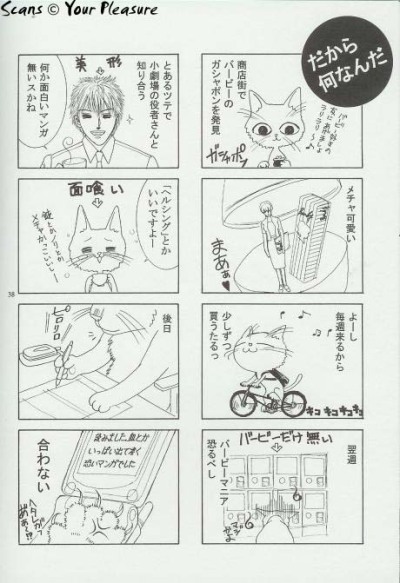 Scans © Your Pleasure
だから
何なんだ
商店街で
バービーの
ガシャポンを
発見
ガシャポン
メチャ可愛い
まぁぁ♥
よーし
毎週来るから
少しずつ
買うたるっ
キコキコキュキュ
翌週
バービーだけ無い
バービーマニア
恐るべし
とあるツテで
小劇場の役者さんと
知り合う
美形
何か面白いマンガ
無いスかね
面喰い
「ヘルシング」とか
いいですよー
後日
ピロリロ
読みました。血とか
いっぱい出て凄く
恐いマンガでした
合わない
38